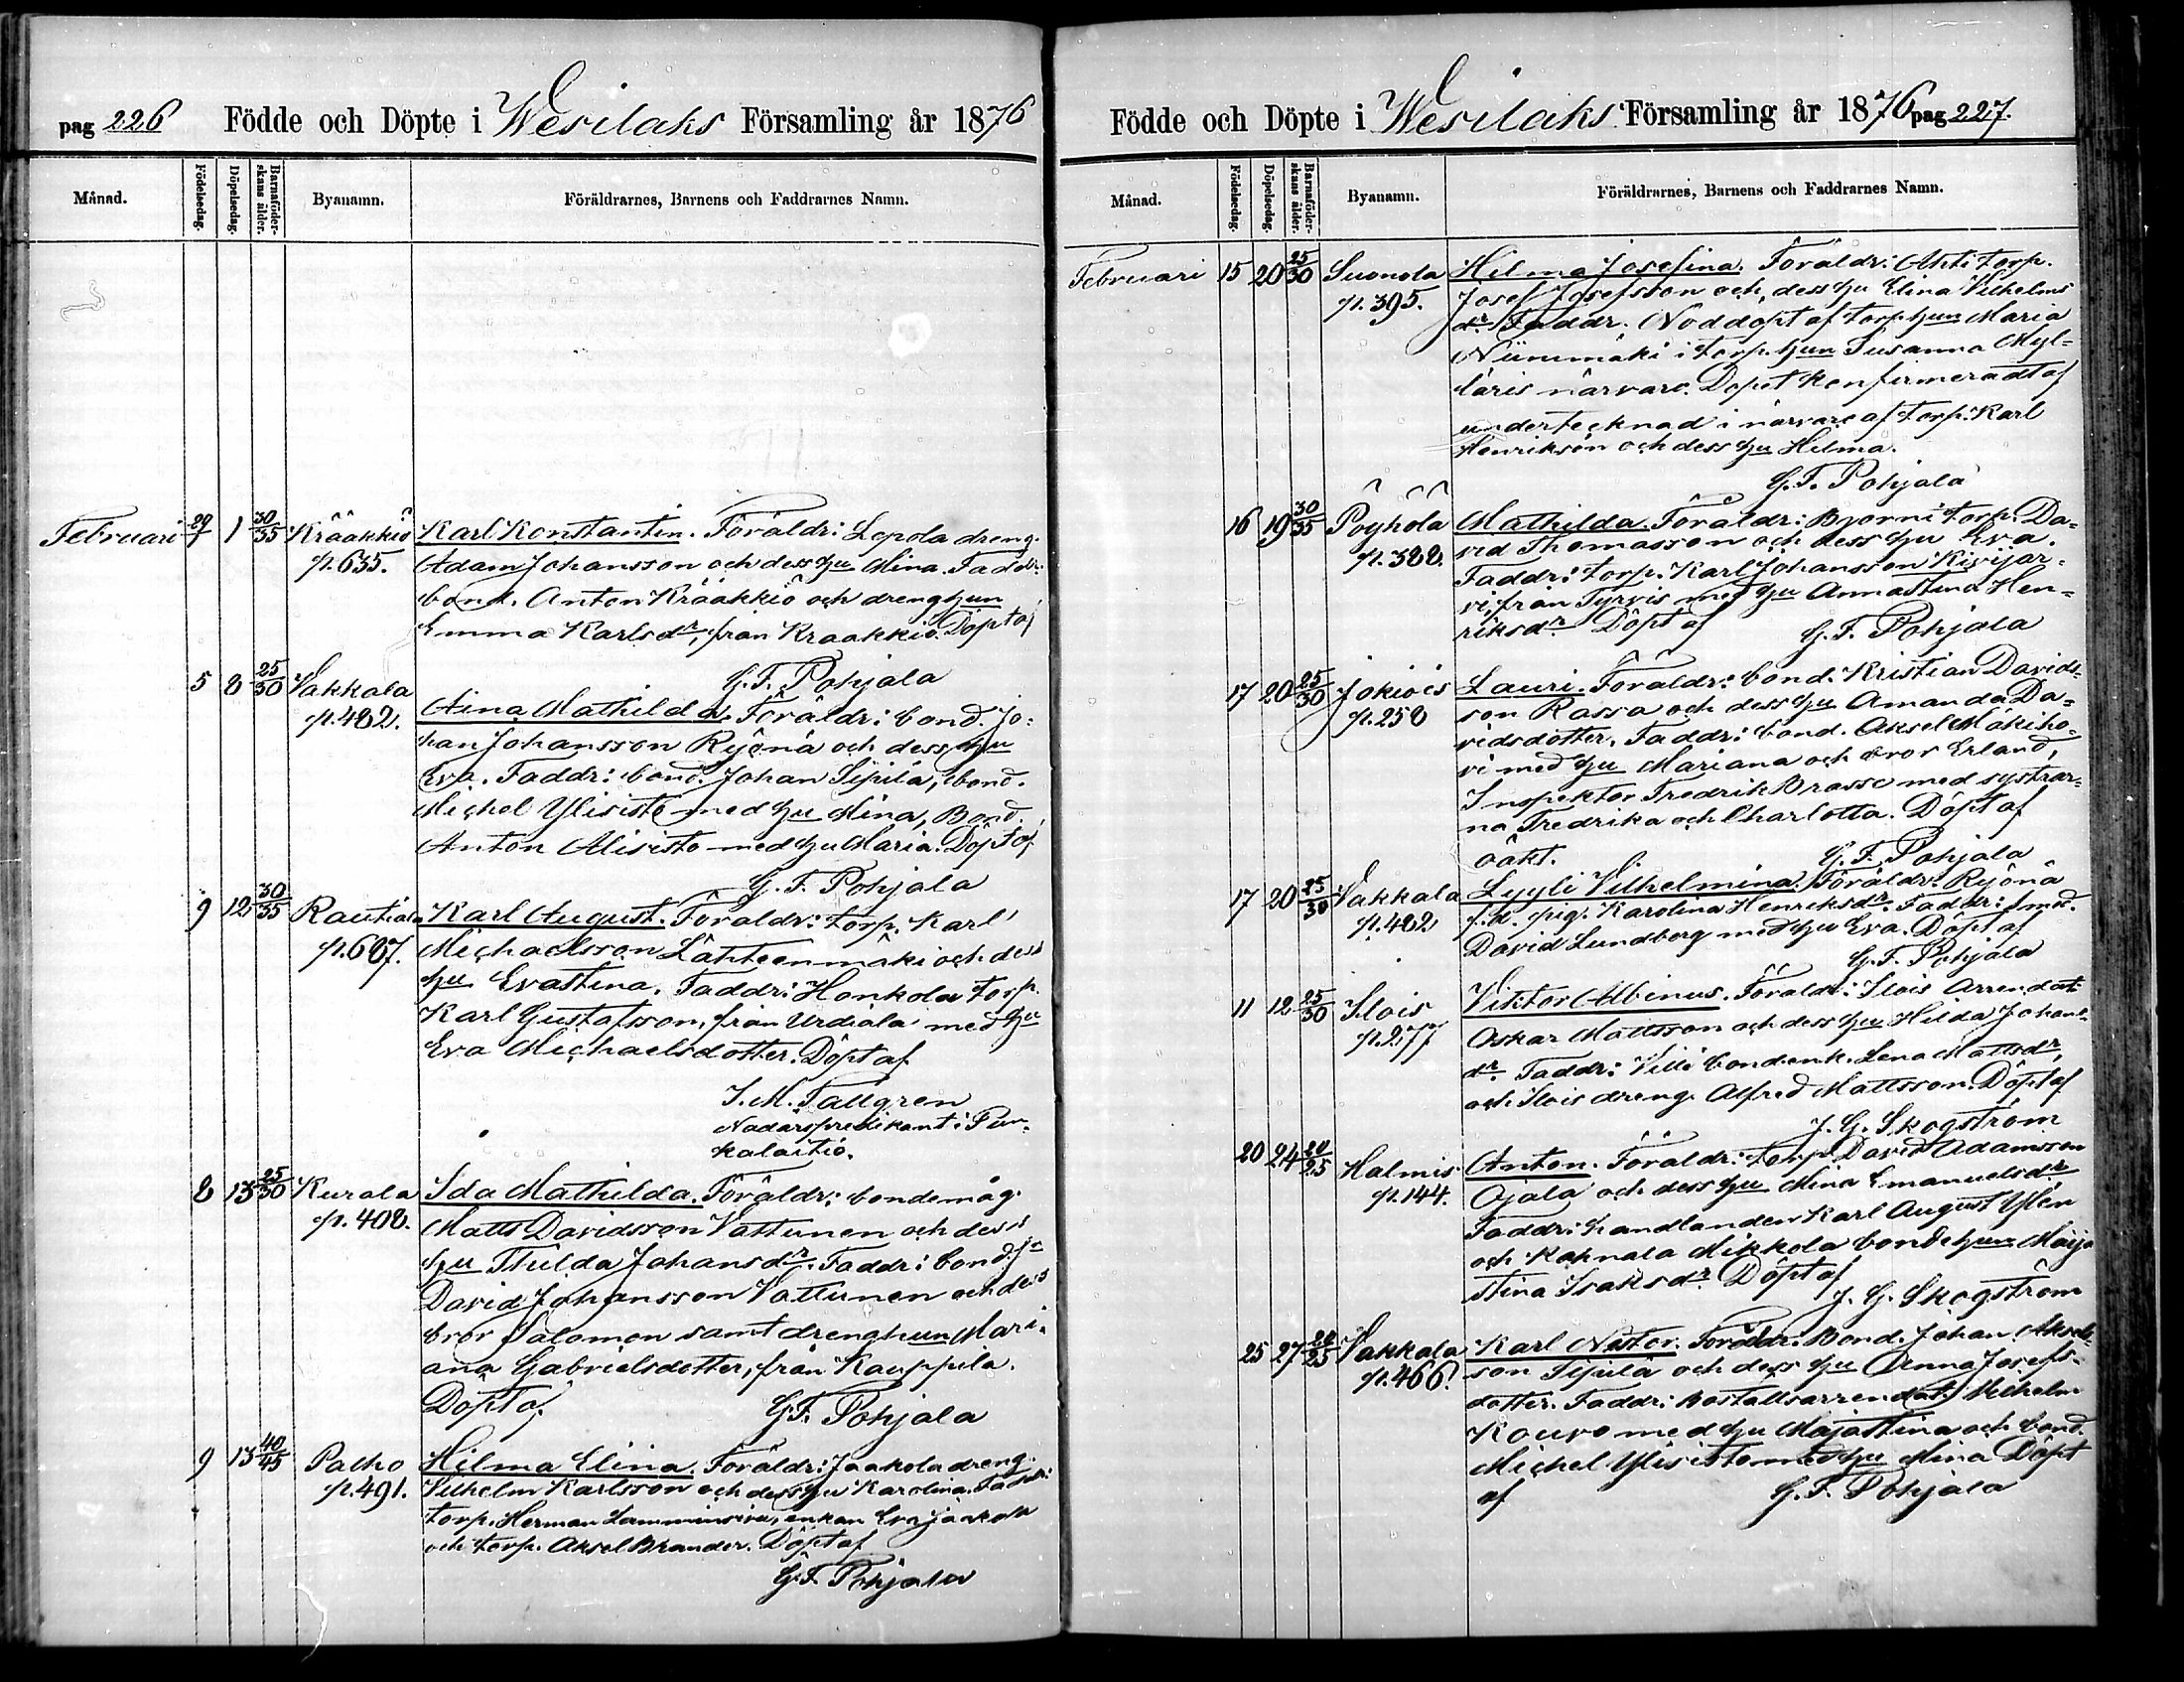 pag 226 Födde och Döpte i Wesilaks Församling år 1876
Månad. Födelsedag. Döpelsedag. Barnaföderskans ålder. Byanamn. Föräldrarnes, Barnens och Faddrarnes Namn.
Februari 29/1 1 30/35 Krääkkiö Karl Konstantin. Föräldr: Lepola dreng.
p. 635. Adam Johansson och dess hu Mina. Faddr:
bond. Anton Krääkkiö och drenghun
Emma Karlsdr, från Krääkkiö. Döpt af
G. F. Pohjala
5 8 25/30 Vakkala Aina Mathilda. Föräldr: bond. Jo=
p. 482. han Johansson Ryönä och dess hu
Eva. Faddr: bond. Johan Sipilä, bond.
Michel Ylisisto med hu Mina, Bond.
Anton Alisisto med hu Maria. Döpt af
G. F. Pohjala
9 12 30/35 Rautiala Karl August. Föräldr: torp. Karl
p. 607. Michaelsson Lähteenmäki och dess
hu Evastina. Faddr: Honkola torp.
Karl Gustafsson, från Urdiala med hu
Eva Michaelsdotter. Döpt af
J. M. Tallgren
Nådårspredikant i Pun-
kalaitio.
8 13 25/30 Kurala Ida Mathilda. Föräldr: bondemåg.
p. 408. Matts Davidsson Vattunen och dess
hu Thilda Johansdr. Faddr: bond.
David Johansson Vattunen och dess
bror Salomon samt drenghun Mari-
ana Gabrielsdotter, från Kauppila.
Döpt af G. F. Pohjala
9 13 40/45 Palho Hilma Elina. Föräldr: Jaakola dreng.
p. 491. Vilhelm Karlsson och dess hu Karolina. Faddr:
torp. Herman Lamminsivu, enkan Eva Jaakola
och torp. Aksel Brander. Döpt af
G. F. Pohjala
Födde och Döpte i Wesilaks Församling år 1876 pag 227.
Månad. Födelsedag. Döpelsedag. Barnaföderskans ålder. Byanamn. Föräldrarnes, Barnens och Faddrarnes Namn.
Februari 15 20 25/30 Suonola Hilma Josefina. Föräldr: Ahti torp.
p. 395. Josef Josefsson och dess hu Elina Vilhelms
dr. Faddr. Nöddöpt af torp. hun Maria
Niinimäki i torp. hun Susanna Myl=
läris närvaro. Dopet konfirmeradt af
undertecknad i närvaro af torp. Karl
Henriksson och dess hu Hilma.
G. F. Pohjala
16 19 30/35 Pöyhölä Mathilda. Föräldr: Björni torp. Da=
p. 388. vid Thomasson och dess hu Eva.
Faddr: torp. Karl Johansson Kivijär-
vi, från Tyrvis med hu Annastina Hen=
riksdr. Döpt af G. F. Pohjala
17 20 25/30 Jokiois Lauri. Föräldr: bond. Kristian Davids-
p. 258 son Rassa och dess hu Amanda Da=
vidsdotter. Faddr: bond. Aksel Mäkiho-
vi med hu Mariana och bror Erland,
Inspektor Fredrik Brasse med systrar-
na Fredrika och Charlotta. Döpt af
oäkt. G. F. Pohjala
17 20 25/30 Vakkala Lyyli Vilhelmina. Föräldr: Ryönä
p. 482 f. d. pig. Karolina Henriksdr. Faddr: Smed.
David Lundberg med hu Eva. Döpt af
G. F. Pohjala
11 12 25/30 Ilois Viktor Albinus. Föräldr: Ilois Arrendat.
p. 277 Oskar Mattsson och dess hu Hilda Johans
dr. Faddr: Villi bondenk. Lena Mattsdr,
och Ilois dreng. Alfred Mattsson. Döpt af
J. G. Skogström
20 24 20/25 Halmis Anton. Föräldr: torp. David Adamsson
p. 144. Ojala och dess hu Mina Emanuelsdr.
Faddr: handlanden Karl August Ylén
och Kahnala Mikkola bondehun Maija
Stina Isaksdr Döpt af
J. G. Skogström
25 27 20/25 Vakkala Karl Nestor. Föräldr: Bond. Johan Aksels-
p. 466. son Sipilä och dess hu Anna Josefs-
dotter. Faddr: Boställsarrendat. Vilhelm
Kouvo med hu Majastina och bond.
Michel Ylisisto med hu Mina Döpt
af G. F. Pohjala